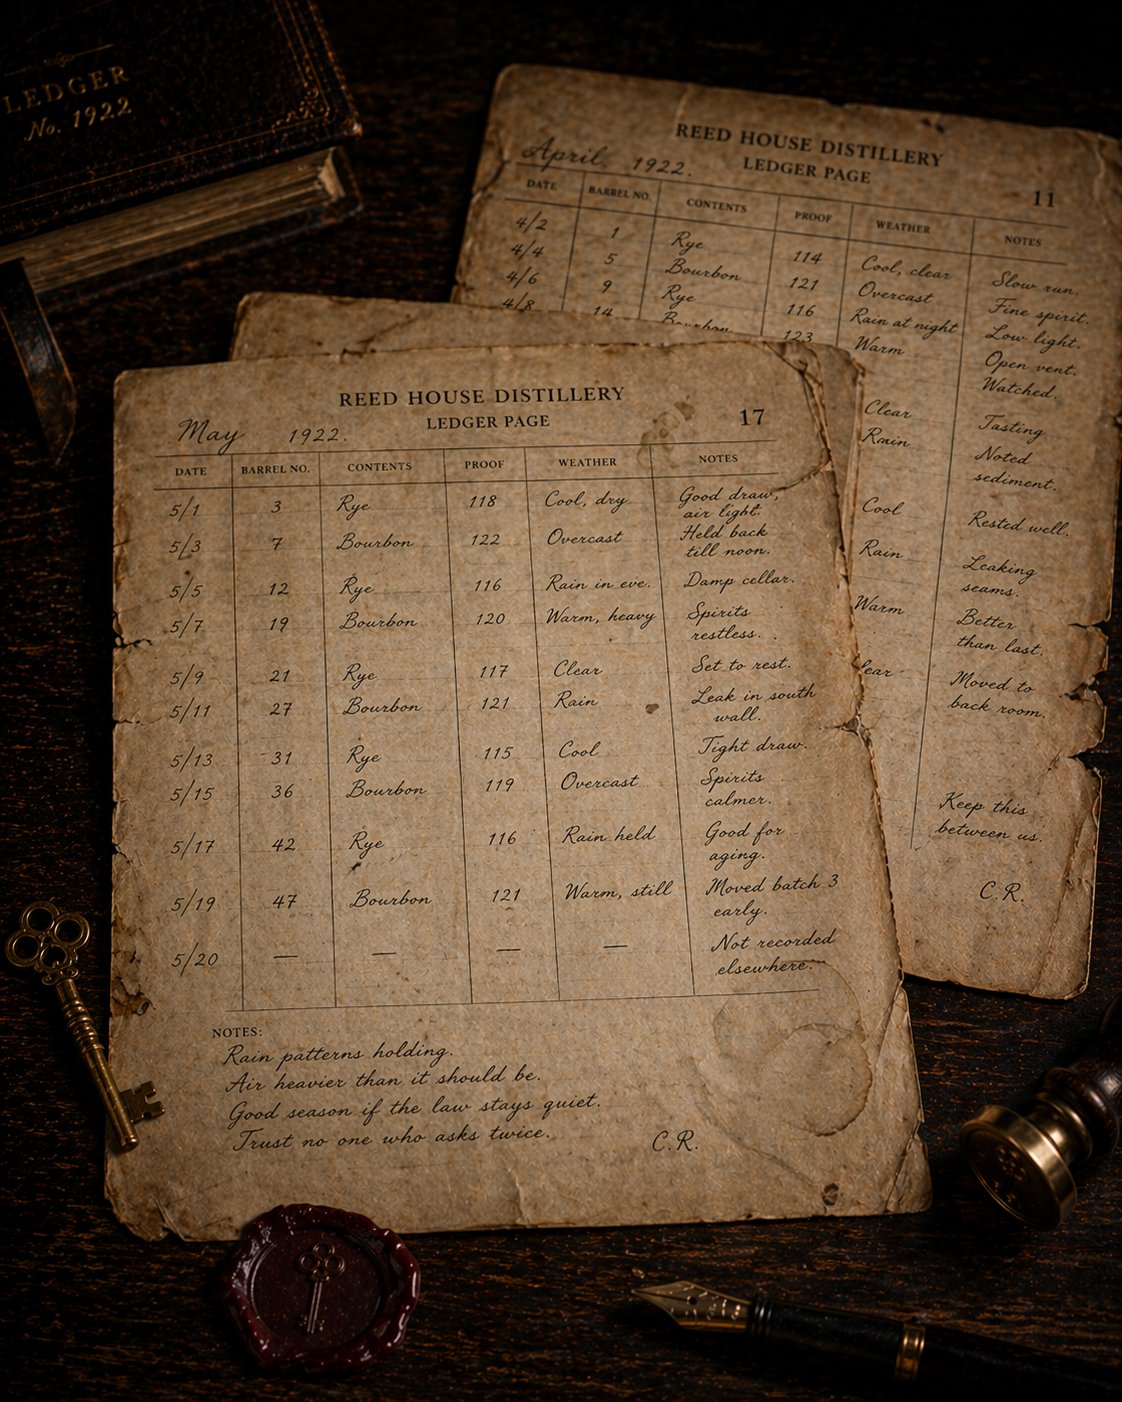 LEDGER
No. 1922
REED HOUSE DISTILLERY
LEDGER PAGE
April 1922.
11
DATE BARREL NO. CONTENTS PROOF WEATHER NOTES
4/2 1 Rye 114 Cool, clear Slow run.
4/4 5 Bourbon 121 Overcast Fine spirit.
4/6 9 Rye 116 Rain at night Low light.
4/8 14 Bourbon 123 Warm Open vent.
Watched.
Clear Tasting
Rain Noted
sediment.
Cool Rested well.
Rain Leaking
seams.
Warm Better
than last.
lear Moved to
back room.
Keep this
between us.
C.R.
REED HOUSE DISTILLERY
LEDGER PAGE
May 1922.
17
DATE BARREL NO. CONTENTS PROOF WEATHER NOTES
5/1 3 Rye 118 Cool, dry Good draw,
air light.
5/3 7 Bourbon 122 Overcast Held back
till noon.
5/5 12 Rye 116 Rain in eve. Damp cellar.
5/7 19 Bourbon 120 Warm, heavy Spirits
restless.
5/9 21 Rye 117 Clear Set to rest.
5/11 27 Bourbon 121 Rain Leak in south
wall.
5/13 31 Rye 115 Cool Tight draw.
5/15 36 Bourbon 119 Overcast Spirits
calmer.
5/17 42 Rye 116 Rain held Good for
aging.
5/19 47 Bourbon 121 Warm, still Moved batch 3
early.
5/20 — — — — Not recorded
elsewhere.
NOTES:
Rain patterns holding.
Air heavier than it should be.
Good season if the law stays quiet.
Trust no one who asks twice.
C.R.